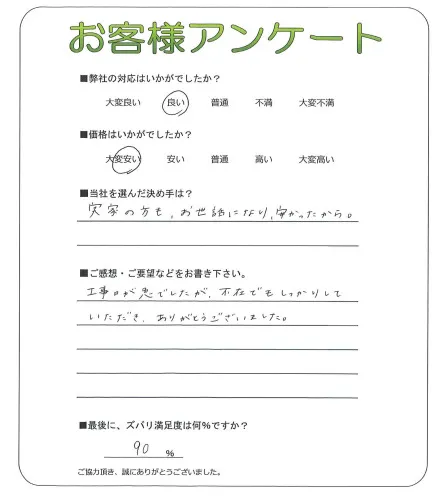 お客様アンケート
■弊社の対応はいかがでしたか？
大変良い 良い 普通 不満 大変不満
■価格はいかがでしたか？
大変安い 安い 普通 高い 大変高い
■当社を選んだ決め手は？
実家の方も、お世話になり、安かったから。
■ご感想・ご要望などをお書き下さい。
工事日が急でしたが、不在でもしっかりして
いただき、ありがとうございました。
■最後に、ズバリ満足度は何％ですか？
90 ％
ご協力頂き、誠にありがとうございました。